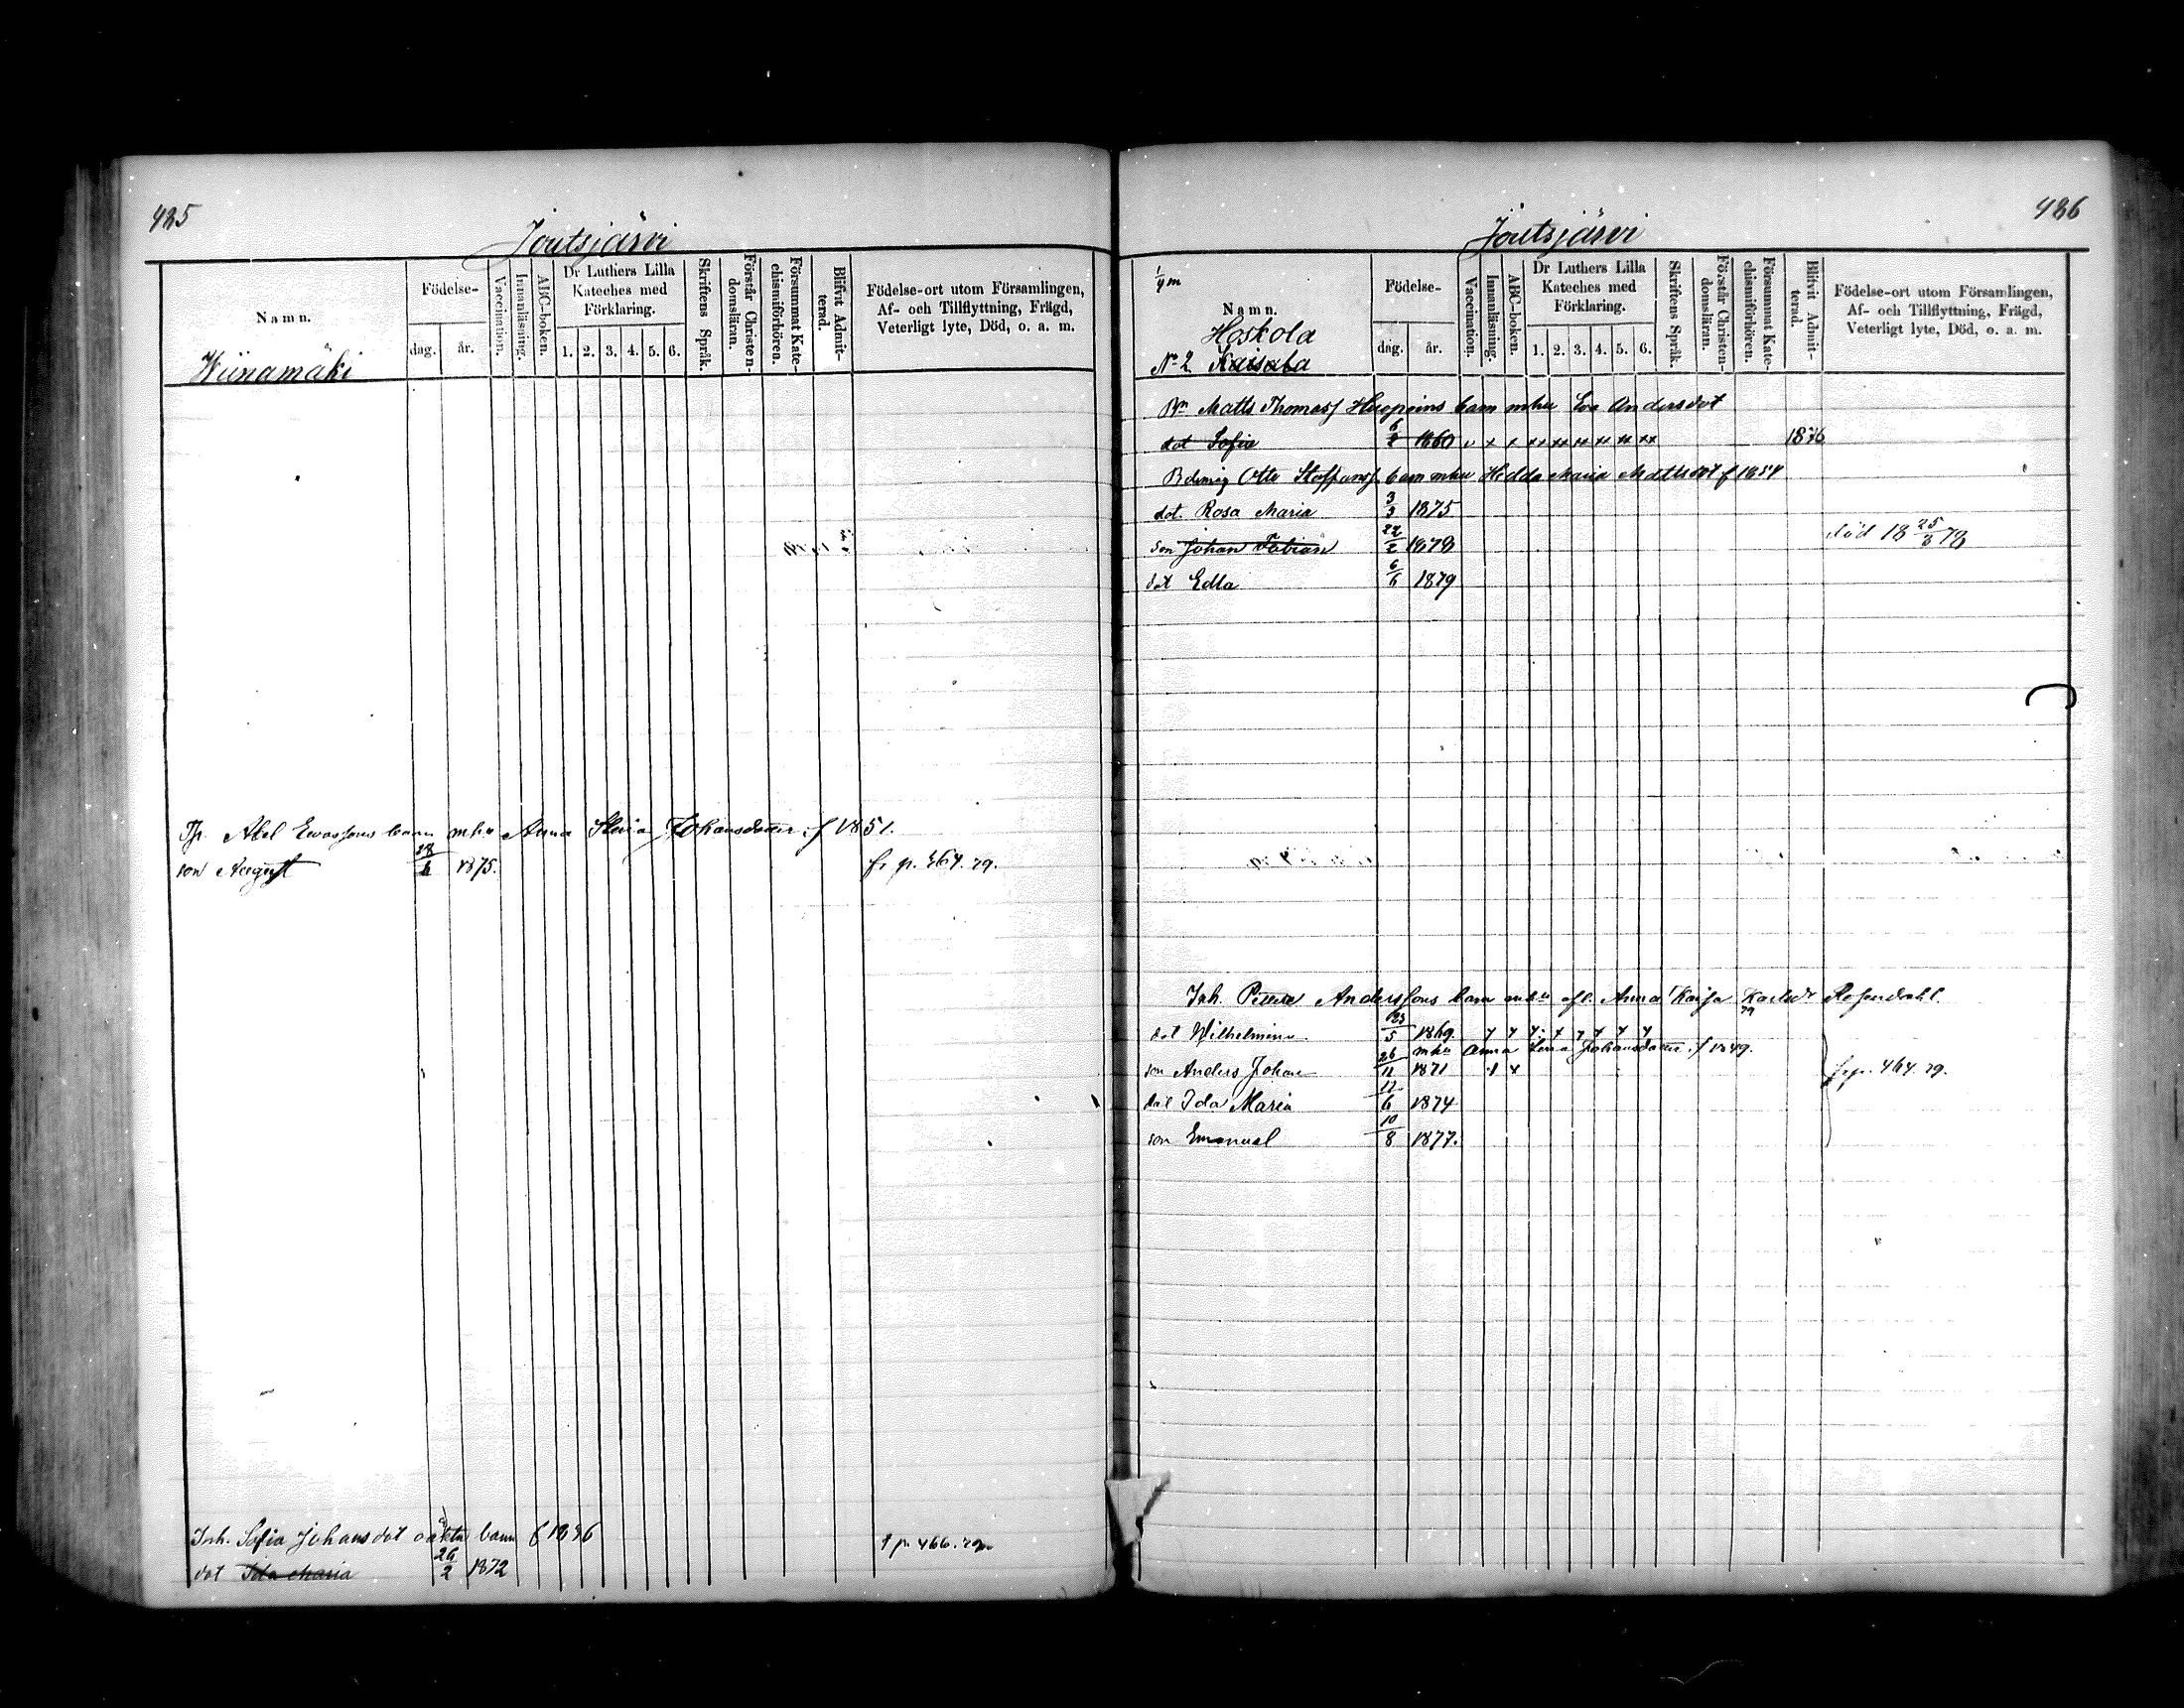 485
Joutsjärvi
Namn.
Födelse-
dag.
år.
Vaccination.
Innanläsning.
ABC-boken.
Dr Luthers Lilla
Kateches med
Förklaring.
1. 2. 3. 4. 5. 6.
Skriftens Språk.
Förstår Christen-
domsläran.
Försummat Kate-
chismiförhören.
Blifvit Admit-
terad.
Födelse-ort utom Församlingen,
Af- och Tillflyttning, Frägd,
Veterligt lyte, Död, o. a. m.
Wiinamäki
Abel barn mhu Anna Johansdotter f 1851.
son August 1875. fr p. 464. 79.
Inh. Sofia Johansdot oäkta barn f 1846
dot Ida Maria 26/2 1872 p 466. 79
486
Joutsjärvi
1/4 m
Namn.
Födelse-
dag.
år.
Vaccination.
Innanläsning.
ABC-boken.
Dr Luthers Lilla
Kateches med
Förklaring.
1. 2. 3. 4. 5. 6.
Skriftens Språk.
Förstår Christen-
domsläran.
Försummat Kate-
chismiförhören.
Blifvit Admit-
terad.
Födelse-ort utom Församlingen,
Af- och Tillflyttning, Frägd,
Veterligt lyte, Död, o. a. m.
Hoskola
No 2 Kaisala
Bn Matts Thomass barn mhu Eva Andersdot
dot Sofia 6/2 1860 1876
Otto Staffanss barn mhu Hedda Maria Mattsdot f 1854
dot. Rosa Maria 3/3 1875
son Johan Fabian 22/2 1878 död 18 25/3 78
dot Edla 6/6 1879
Inh. Anderssons barn mhu Anna Kaisa Rosendahl.
dot Wilhelmina 23/5 1869.
mhu Anna Lena Johansdotter f 1849.
son Anders Johan 26/11 1871 fr p. 464. 79.
dot Ida Maria 12/6 1874
son Emanuel 10/8 1877.